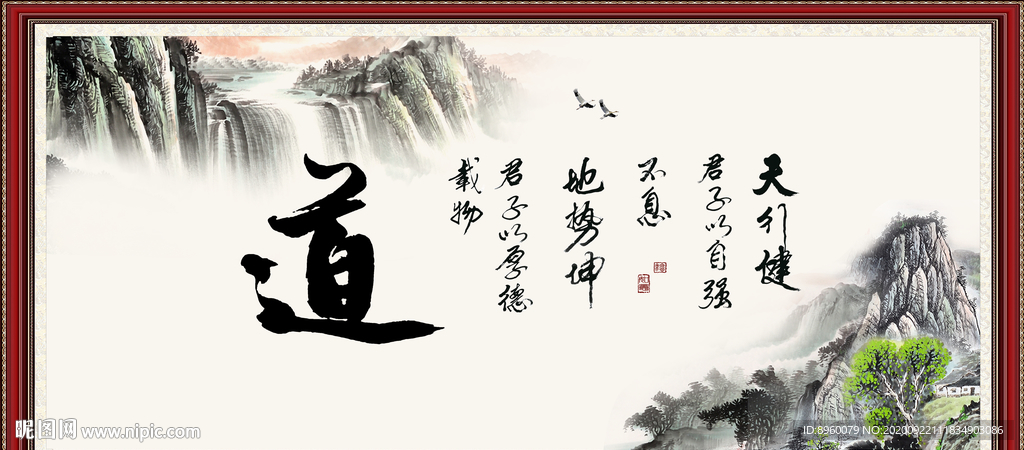 天行健
君子以自强
不息
地势坤
君子以厚德
载物
道
昵图网 www.nipic.com
ID:8960079 NO:20200922111834903086